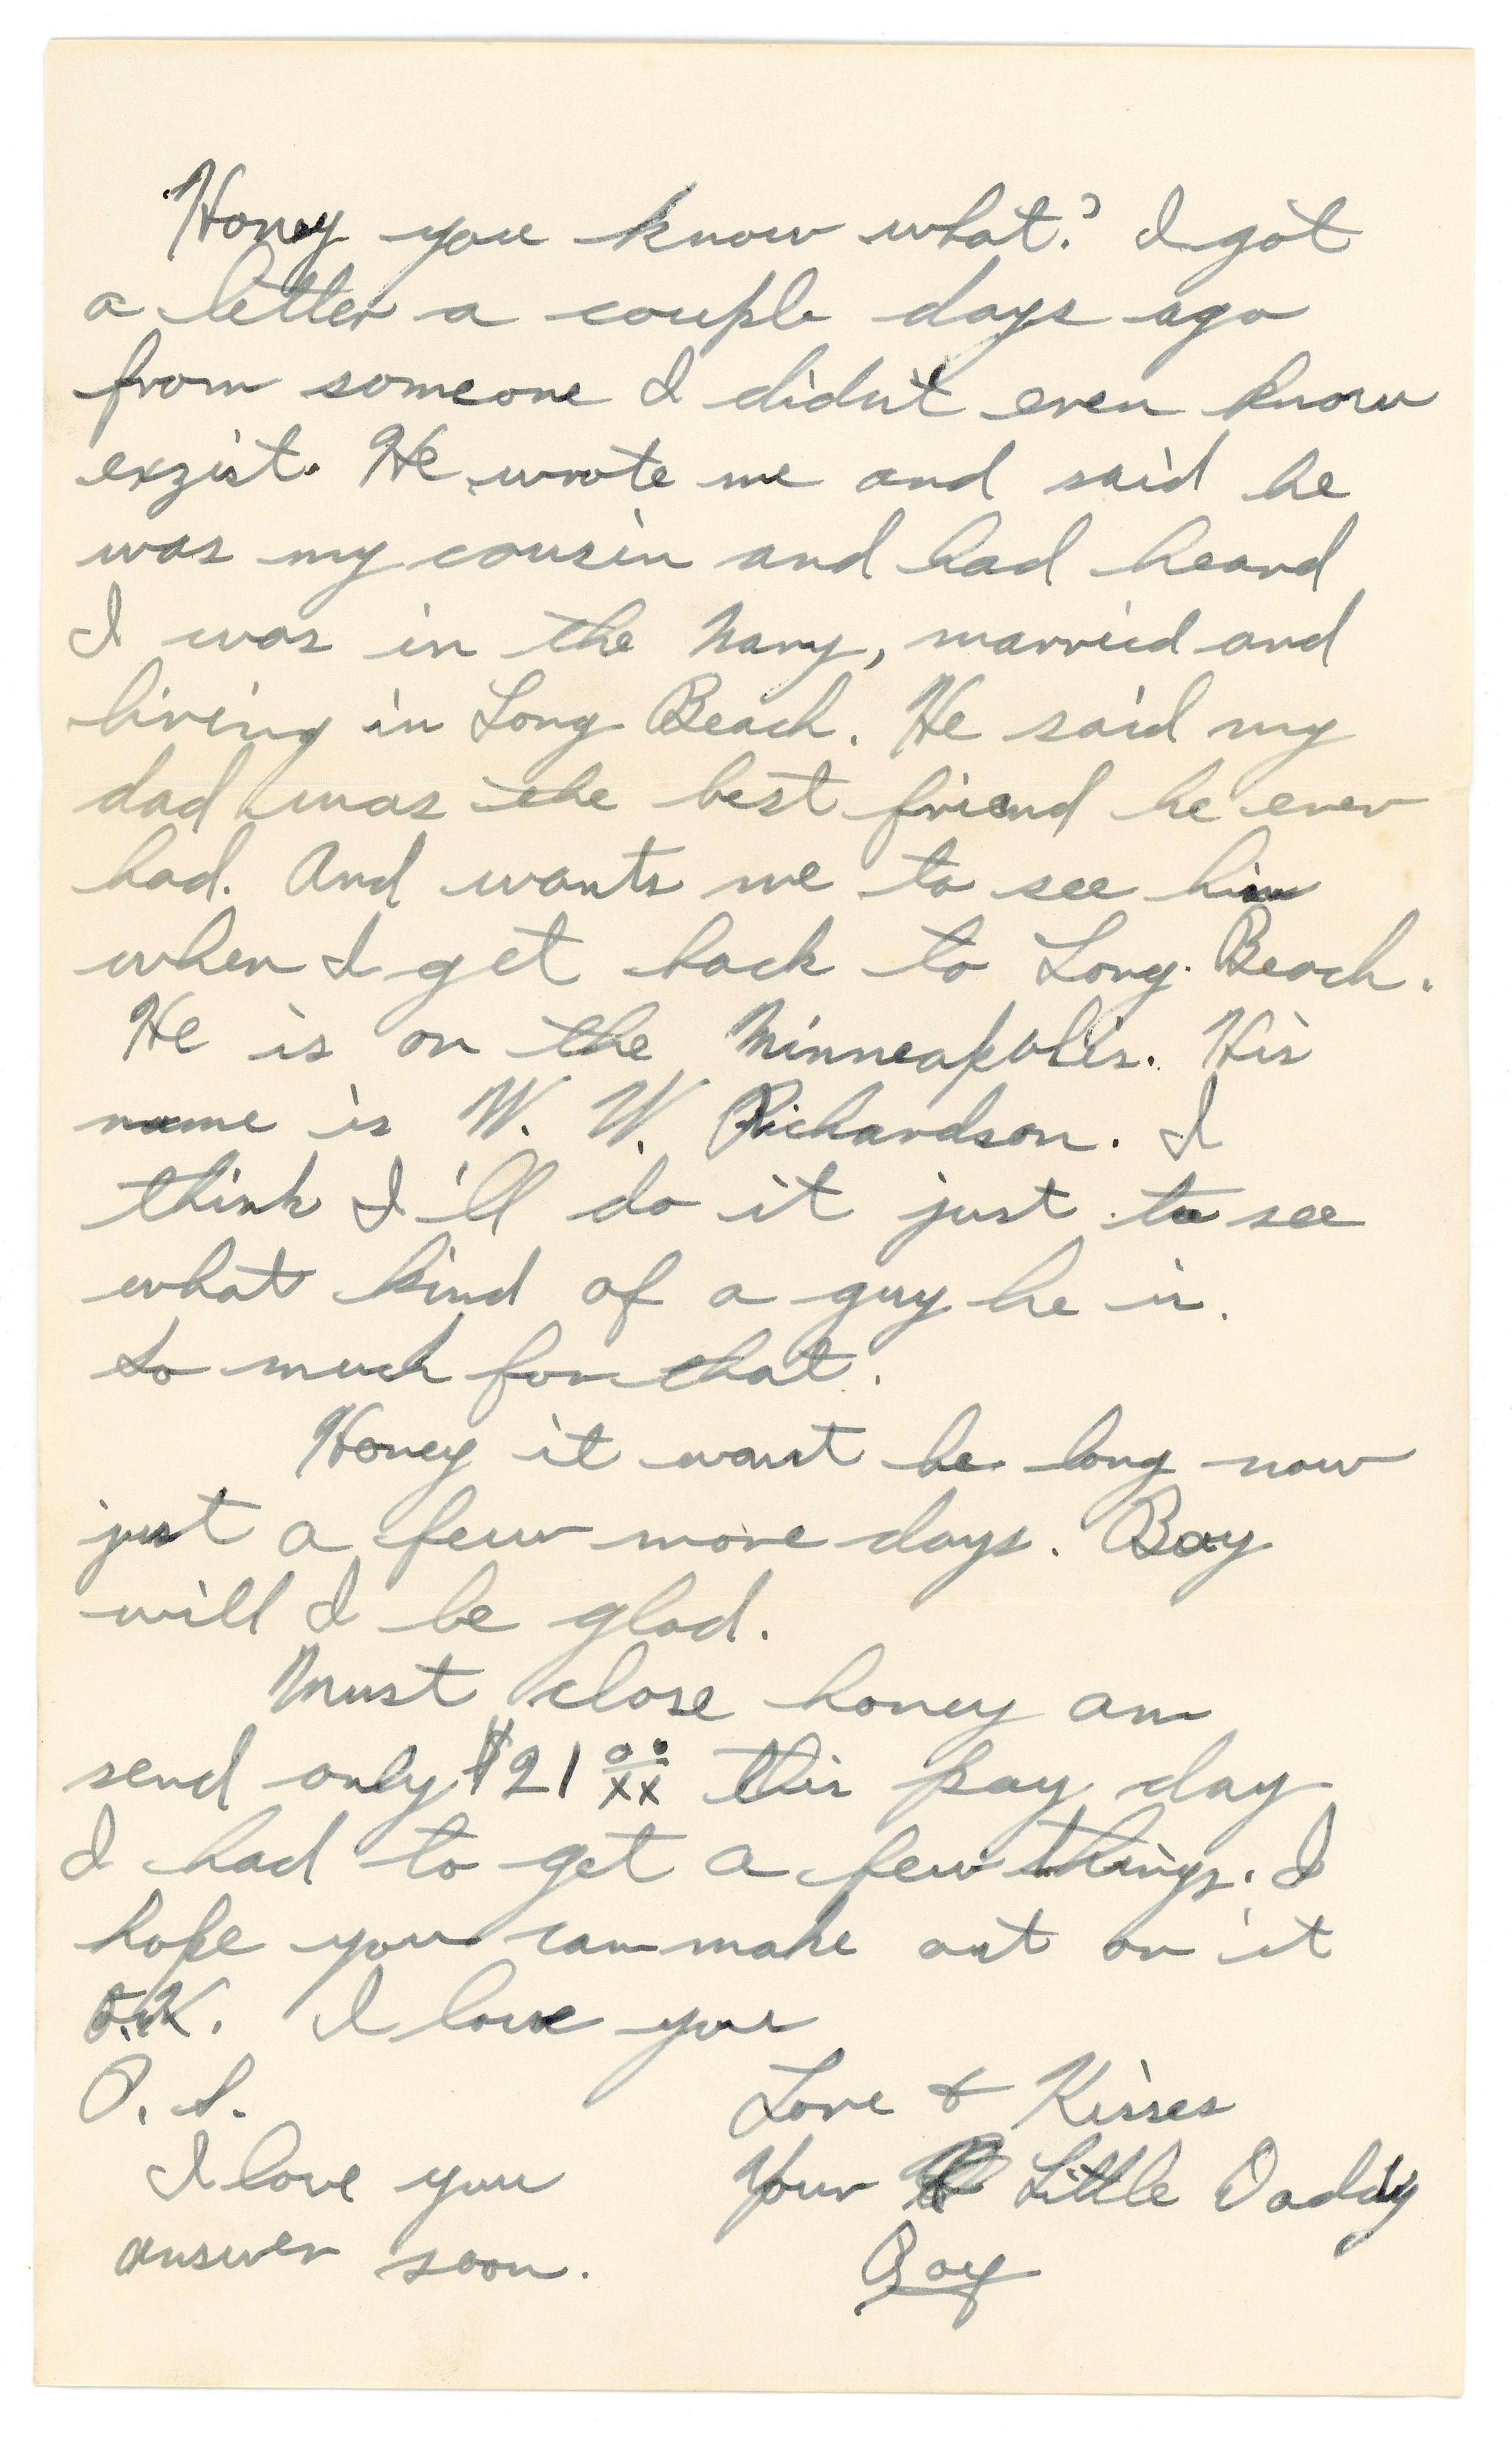 Honey you know what? I got
a letter a couple days ago
from someone I didn't even know
exzist. He wrote me and said he
was my cousin and had heard
I was in the Navy, married and
living in Long Beach. He said my
dad was the best friend he ever
had. And wants me to see him
when I get back to Long Beach.
He is on the Minneapolis. His
name is W. W. Richardson. I
think I'll do it just to see
what kind of a guy he is.
So much for that.
Honey it wont be long now
just a few more days. Boy
will I be glad.
Must close honey am
send only $21 00/xx this pay day
I had to get a few things. I
hope you can make out on it
O.K. I love you
P.S. Love & Kisses
I love you Your Little Daddy
answer soon. Roy